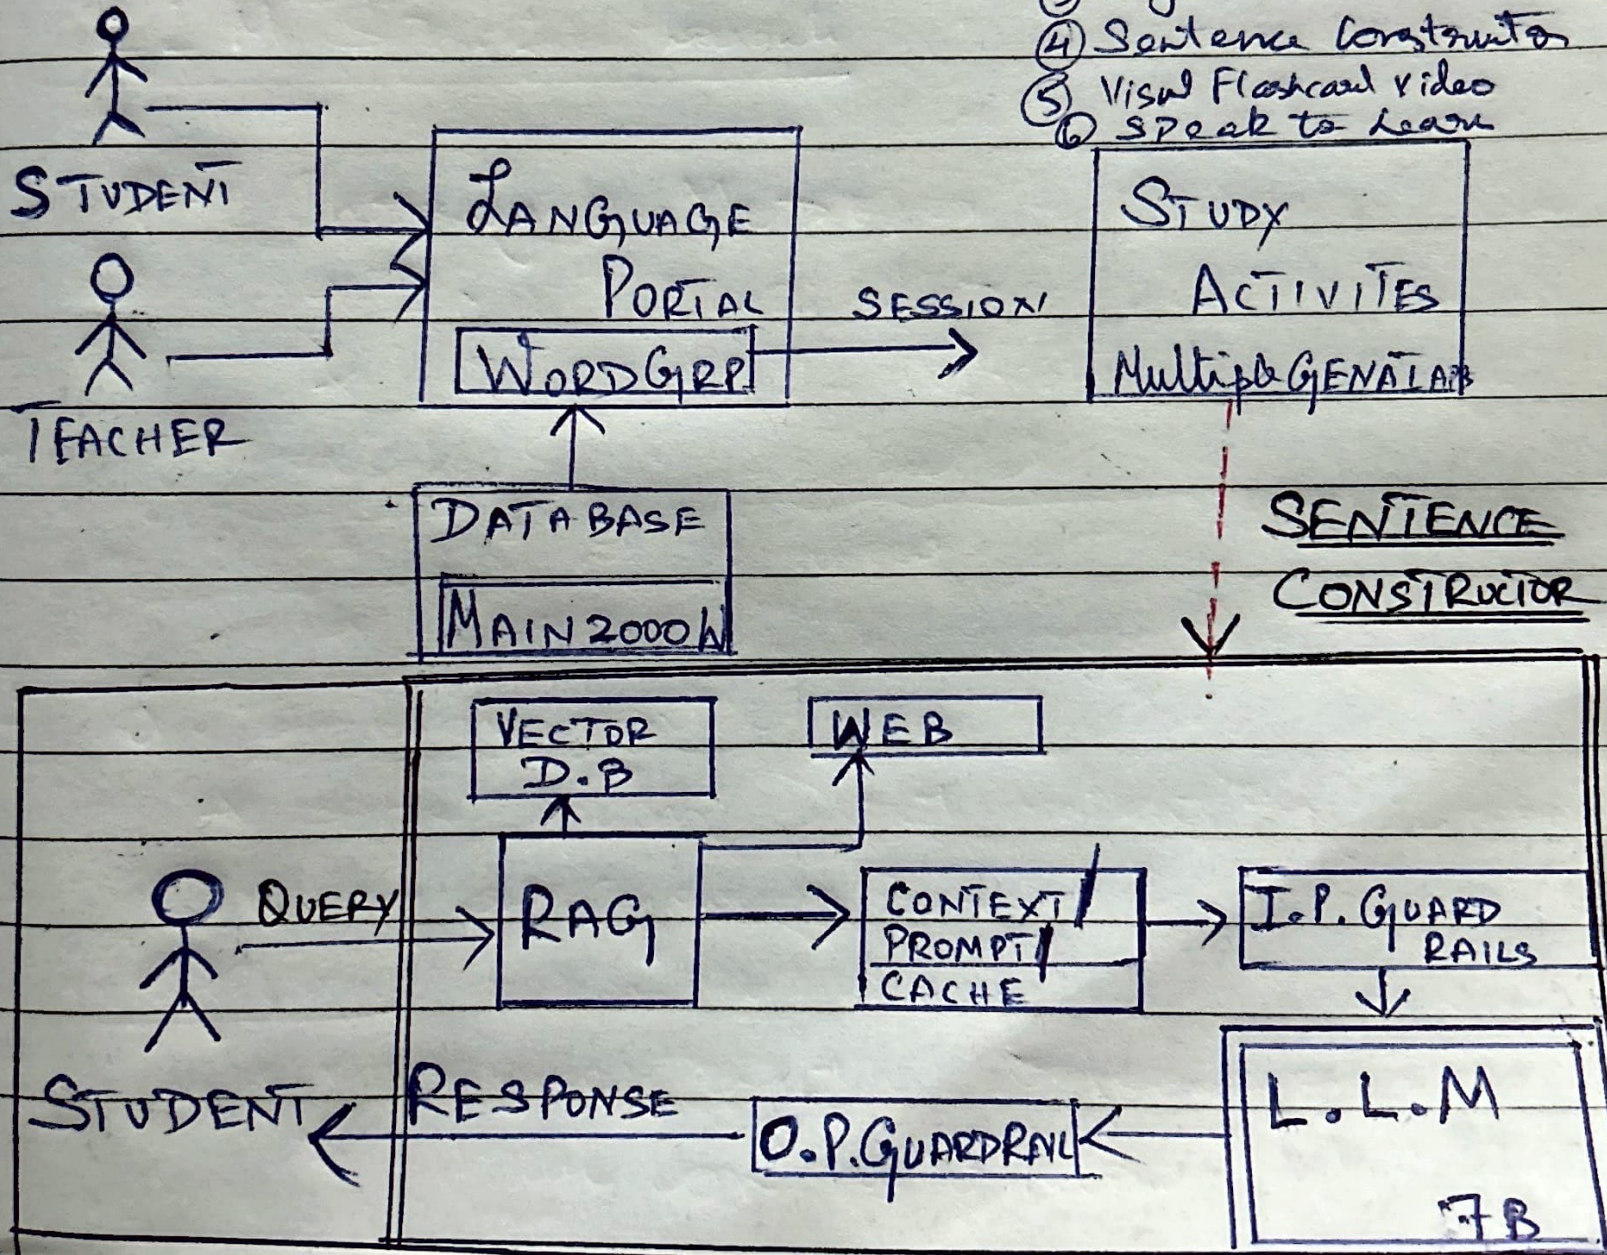 ④ Sentence Constructor
⑤ Visual Flashcard video
⑥ Speak to Learn
STUDENT
LANGUAGE
PORTAL
WORDGRP
SESSION
STUDY
ACTIVITES
Multiple GENAIAPPS
TEACHER
DATABASE
MAIN 2000 W
SENTENCE
CONSTRUCTOR
VECTOR
D.B
WEB
QUERY
RAG
CONTEXT/
PROMPT/
CACHE
I.P. GUARD
RAILS
STUDENT
RESPONSE
O.P. GUARDRAIL
L.L.M
7B